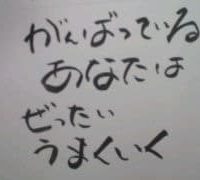 がんばっている
あなたは
ぜったい
うまくいく